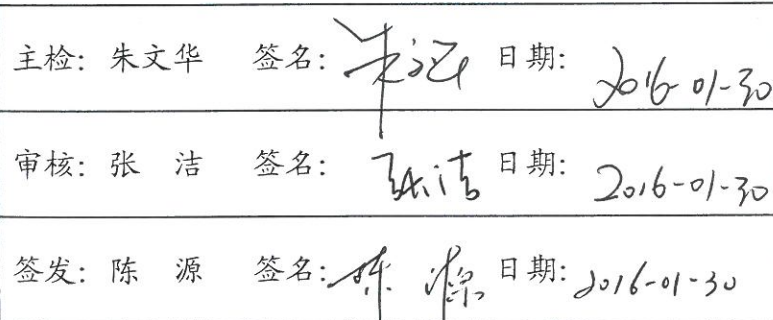 主检: 朱文华 签名: 朱文华 日期: 2016-01-30
审核: 张 洁 签名: 张洁 日期: 2016-01-30
签发: 陈 源 签名: 陈源 日期: 2016-01-30